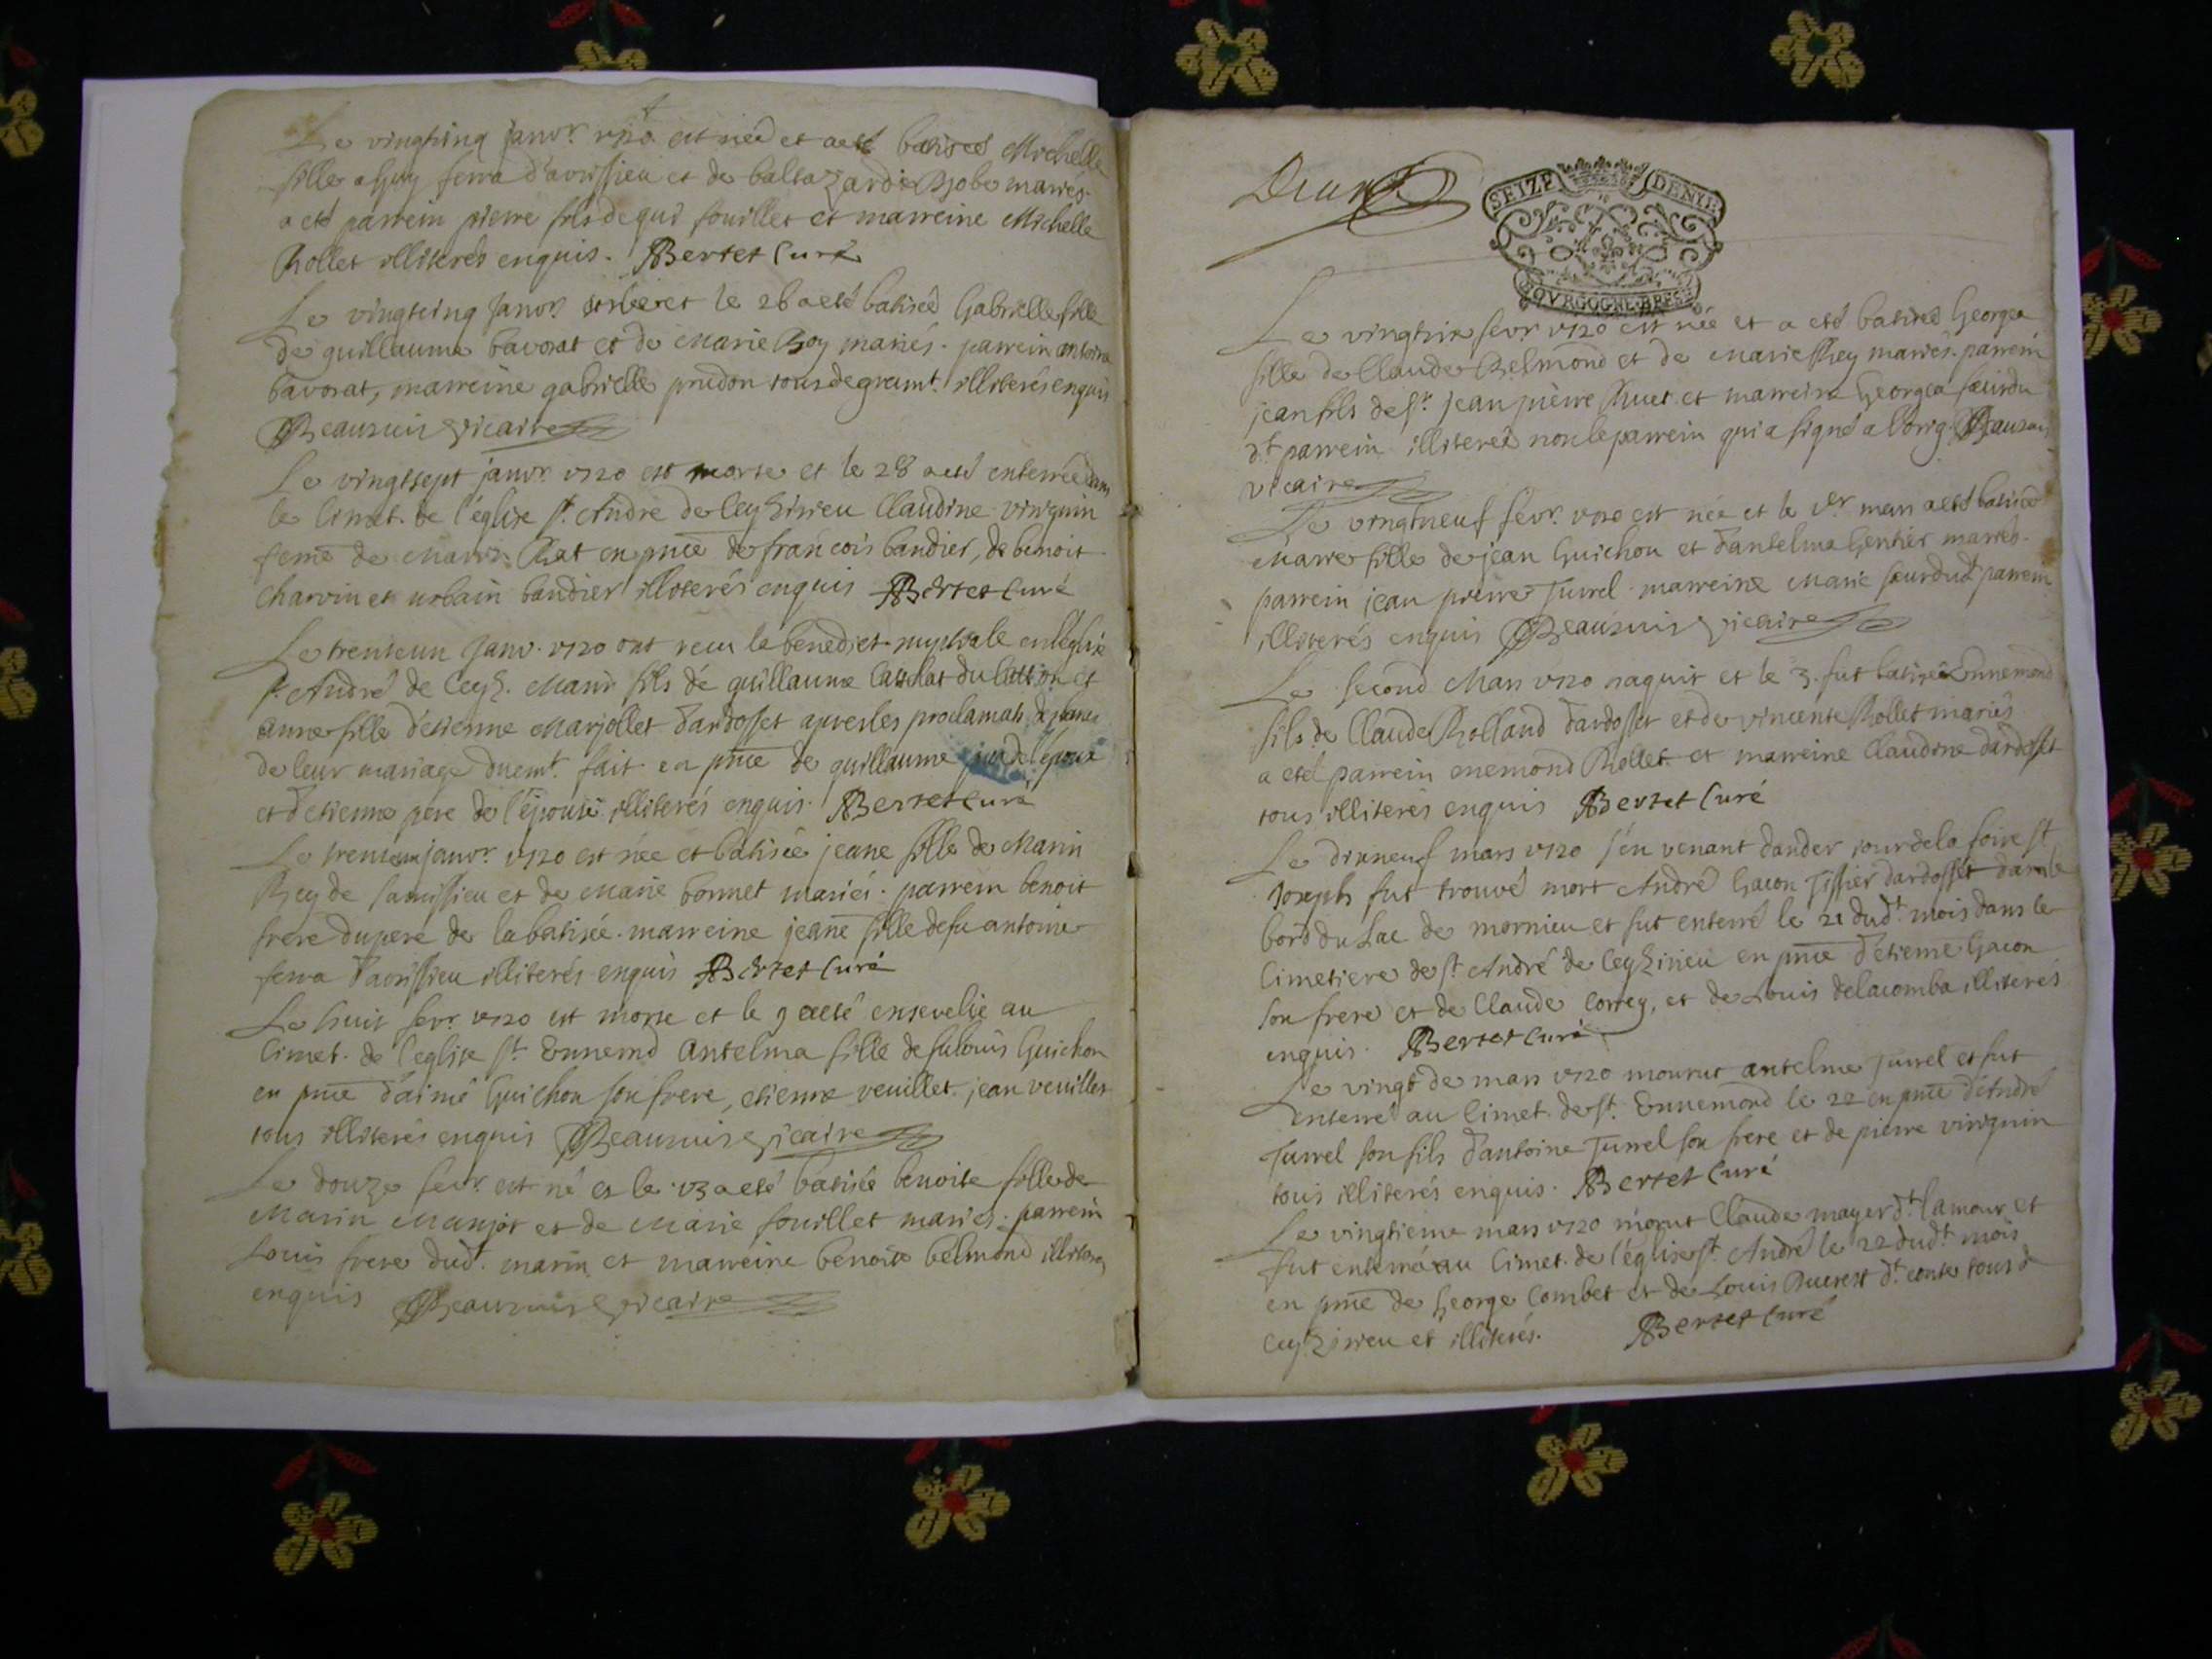 Le vingtcinq janvr. 1720 est née et a eté batisée Michelle
fille a Guy ferra d'avrissieu et de baltazarde Gobe mariés.
a eté parrein pierre fils de gui fouillet et marreine Michelle
Rollet illiterés enquis. Bertet Curé
Le vingtcinq Janvr. et le 26 a eté batisée Gabrielle fille
de guillaume bavorat et de Marie Roy mariés. parrein antoine
bavorat, marreine gabrielle prudon tous de gramt. illiterés enquis
Beauzuis vicaire
Le vingtsept janvr. 1720 est morte et le 28 a eté enterrée dans
le Cimet. de l'église st. André de Ceyzirieu Claudine vinquin
feme de Marin Rat en pnce de francois bandier, de benoit
Charvin et urbain bandier illiterés enquis Bertet Curé
Le trenteun Janv. 1720 ont receu la benedict. nuptiale en l'église
st. André de Ceyz. Marin fils de guillaume et
anne fille d'etienne Marjollet d'ardosset apres les proclamats
de leur mariage duemt. fait en pnce de guillaume pere de l'epoux
et d'etienne pere de l'épouse illiterés enquis. Bertet Curé
Le trenteun janvr. 1720 est née et batisée jeane fille de Marin
Rey de savissieu et de Marie bonnet mariés. parrein benoit
frere du pere de la batisée. marreine jeane fille de fu antoine
ferra d'avrissieu illiterés enquis Bertet Curé
Le huit fevr. 1720 est morte et le 9 a eté ensevelie au
Cimet. de l'eglise st. Ennemd Antelma fille de fu louis Guichon
en pnce d'aimé Guichon son frere, etienne veuillet. jean veuillet
tous illiterés enquis Beauzuis vicaire
Le douze fevr. est né et le 13 a eté batisée benoite fille de
Marin Manjot et de Marie fouillet mariés. parrein
Louis frere dudt. marin et marreine benoite belmond illiterés
enquis Beauzuis vicaire
SEIZE DENIE
BOVRGOGNE·BRESE
Le vingtsix fevr. 1720 est née et a eté batisée Georgea
fille de Claude Belmond et de Marie Rey mariés. parrein
jean fils de sr. jean pierre Huet et marreine Georgea sœur du
dt. parrein illiterée non le parrein qui a signé a l'orig. Beauzuis
vicaire
Le vingtneuf fevr. 1720 est née et le 1er mars a eté batisée
Marie fille de jean Guichon et d'antelma Gentier mariés.
parrein jean pierre Jurrel. marreine Marie sœur dudt parrein
illiterés enquis Beauzuis vicaire
Le second Mars 1720 naquit et le 3. fut batisé Ennemond
fils de Claude Rolland d'ardosset et de vincente Rollet mariés
a eté parrein enemond Rollet et marreine Claudine d'ardosset
tous illiterés enquis Bertet Curé
Le dixneuf mars 1720 s'en venant d'ander jour de la foire st
Joseph fut trouvé mort André Gacon Tissier d'ardosset dans le
bord du Lac de mornieu et fut enterré le 21 dudt. mois dans le
Cimetiere de st. André de Ceyzirieu en pnce d'etiene Gacon
son frere et de Claude Correy, et de Louis delacomba illiterés
enquis. Bertet Curé
Le vingt de mars 1720 mourut antelme Jurrel et fut
enterré au Cimet. de st. Ennemond le 22 en pnce d'André
Jurrel son fils d'antoine Jurrel son frere et de pierre vinquin
tous illiterés enquis. Bertet Curé
Le vingtieme mars 1720 morut Claude mayer dt. lamour et
fut enterré au Cimet. de l'église st. André le 22 dudt. mois
en pnce de George Combet et de Louis dt. conte tous de
Ceyzirieu et illiterés. Bertet Curé